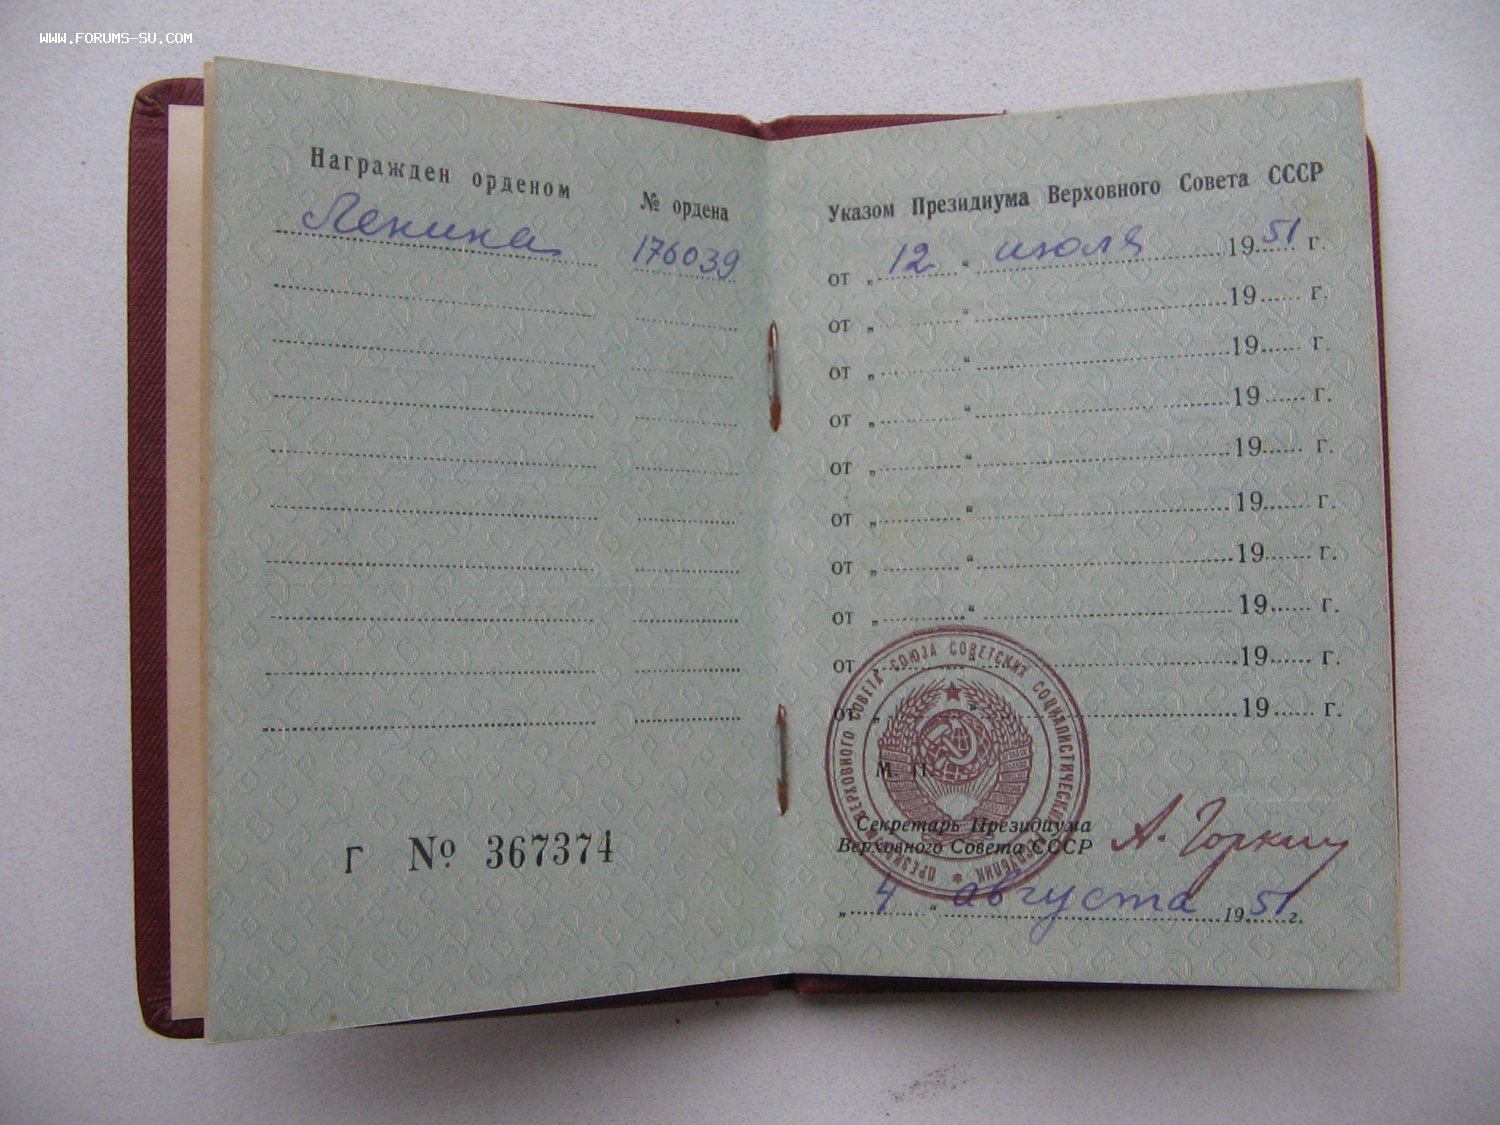 WWW.FORUMS-SU.COM
Награжден орденом № ордена
Ленина 176039
Г № 367374
Указом Президиума Верховного Совета СССР
от „ 12 “ июля 1951 г.
от „ “ 19 г.
от „ “ 19 г.
от „ “ 19 г.
от „ “ 19 г.
от „ “ 19 г.
от „ “ 19 г.
от „ “ 19 г.
от „ “ 19 г.
от „ “ 19 г.
ПРЕЗИДИУМ ВЕРХОВНОГО СОВЕТА СОЮЗА СОВЕТСКИХ СОЦИАЛИСТИЧЕСКИХ РЕСПУБЛИК
М. П.
Секретарь Президиума
Верховного Совета СССР А. Горкин
„ 4 “ августа 1951 г.